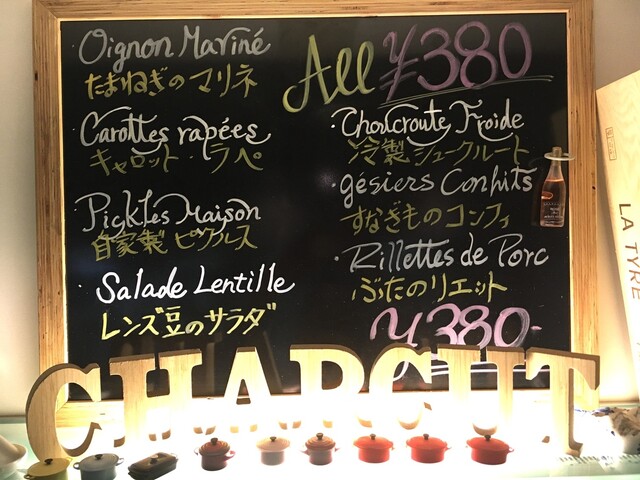 Oignon Mariné
たまねぎのマリネ
Carottes rapées
キャロット・ラペ
Pickles Maison
自家製ピクルス
Salade Lentille
レンズ豆のサラダ
All ¥380
・Choucroute Froide
冷製シュークルート
・gésiers Conhits
すなぎものコンフィ
・Rillettes de Porc
ぶたのリエット
¥380-
CHARCUT
LA TYRE